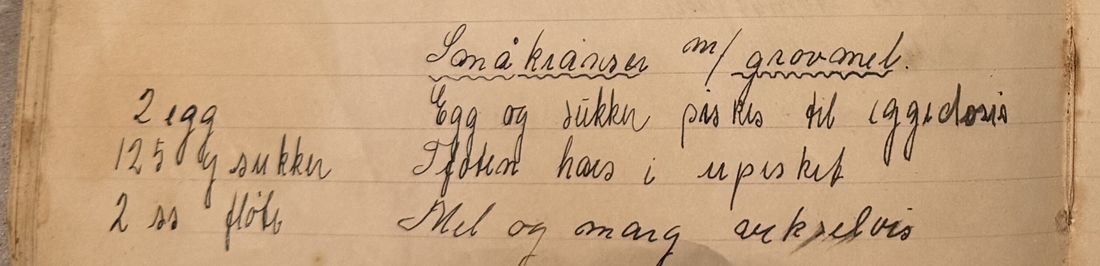 Småkranser m/ grovmel.
2 egg Egg og sukker piskes til eggedosis
125 g sukker Fløten haes i upisket
2 ss fløte Mel og marg vekselvis